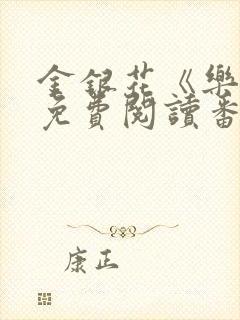 金銀花《樂
免費閱讀番
康正